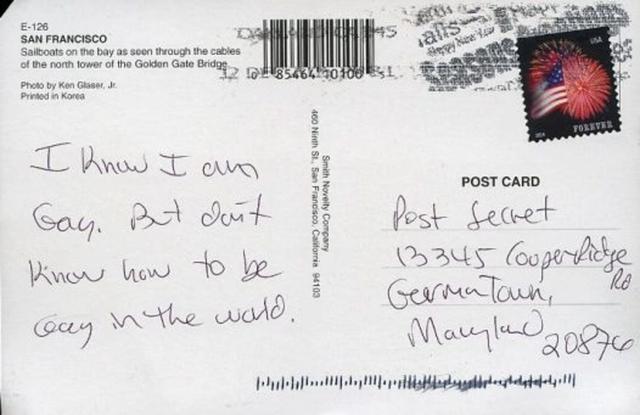 E-126
SAN FRANCISCO
Sailboats on the bay as seen through the cables
of the north tower of the Golden Gate Bridge
Photo by Ken Glaser, Jr.
Printed in Korea
12 DE
0 85464 10106
Happy New Year
USA
FOREVER
I know I am
Gay. But don't
know how to be
Gay in the world.
Smith Novelty Company
460 Ninth St., San Francisco, California 94103
POST CARD
Post Secret
13345 Copper Ridge
Rd
Germantown,
Maryland
20874